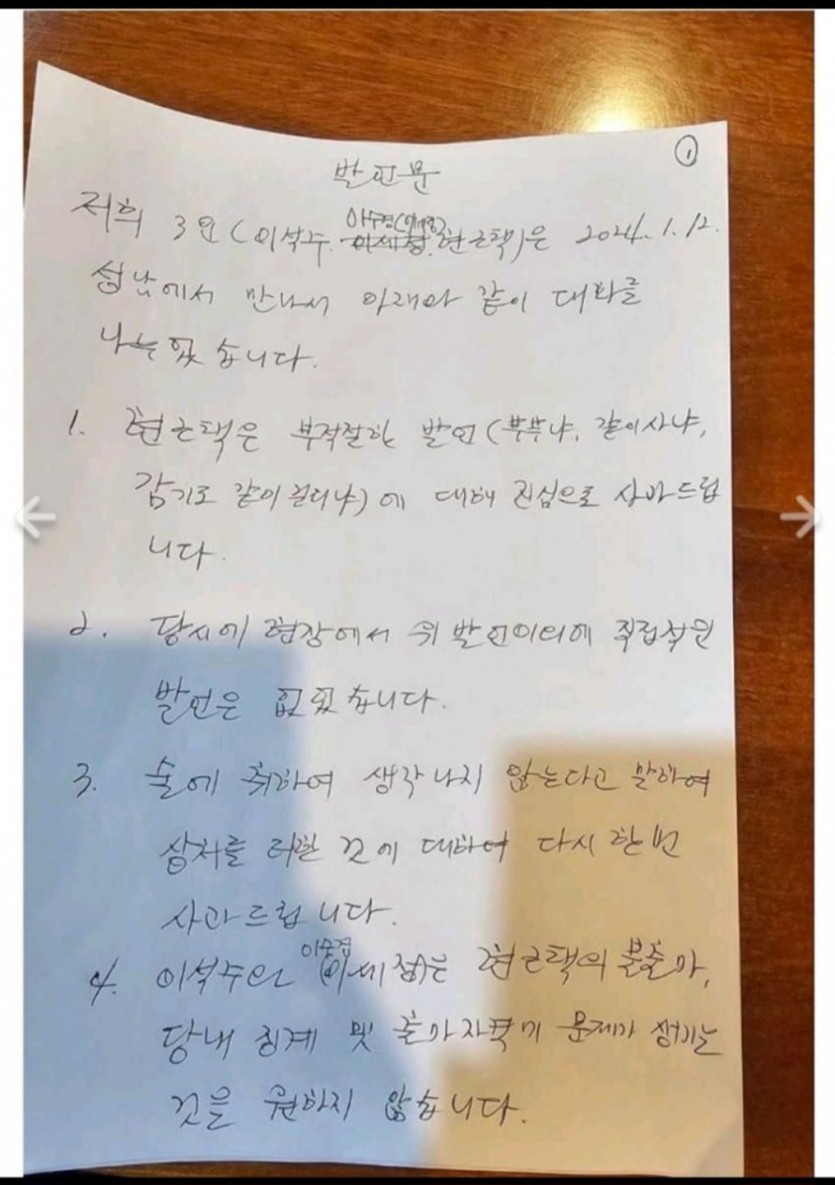 ①
발언문
저희 3인(이석주. 현근택)은 2024. 1. 12.
성남에서 만나서 아래와 같이 대화를
나누었습니다.
1. 현근택은 부적절한 발언(부부냐, 같이사냐,
감기도 같이 걸리냐)에 대해 진심으로 사과드립
니다.
2. 당시에 현장에서 위 발언이외에 직접적인
발언은 없었습니다.
3. 술에 취하여 생각나지 않는다고 말하여
상처를 더한 것에 대하여 다시 한번
사과드립니다.
4. 이석주와 는 현근택의 불출마,
당내 징계 및 출마자격에 문제가 생기는
것을 원하지 않습니다.